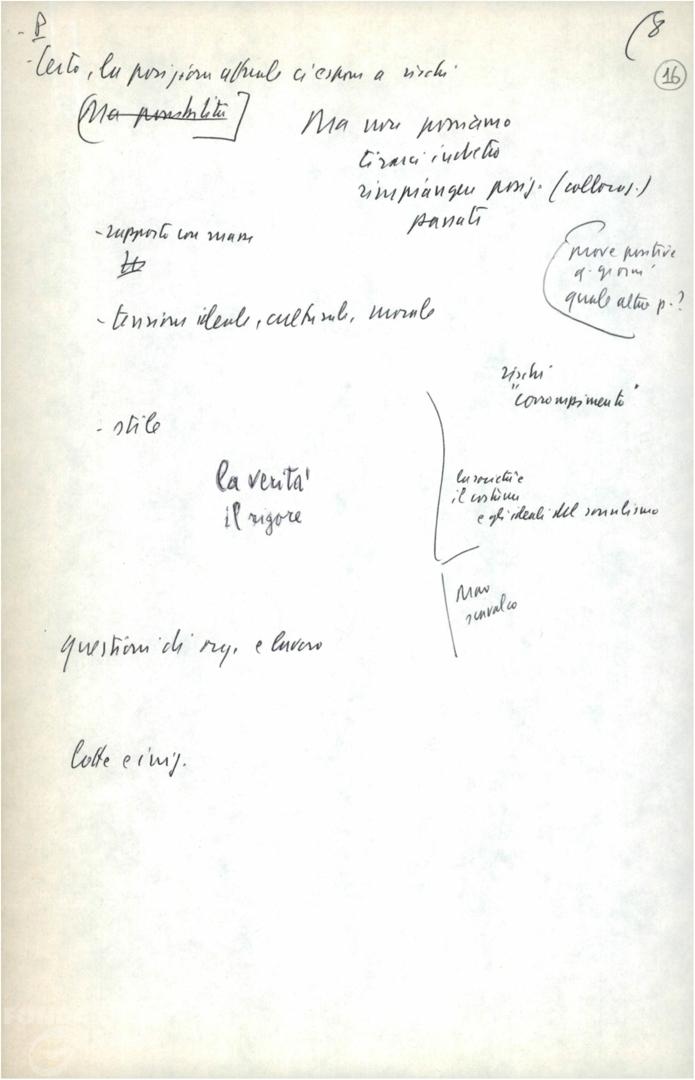 - P
(8
16
- Certo, la posizione attuale ci espone a rischi
(Ma possibilità]
Ma non possiamo
tirarci indietro
rimpiangere posiz. (collocaz.)
passati
- rapporto con masse
prove positive
a. giorni
quale altro p.?
- tensione ideale, culturale, morale
rischi
"corrompimento"
- stile
la verità
il rigore
la società e
il costume
e gli ideali del socialismo
questioni di org. e lavoro
lotte e iniz.